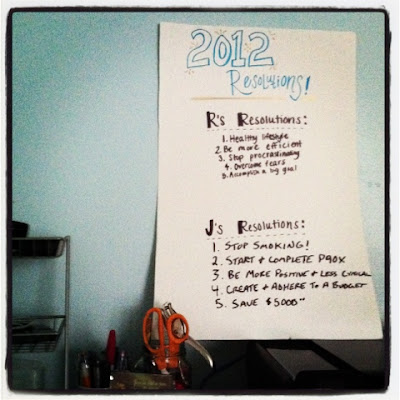 2012
Resolutions!
R's Resolutions:
1. Healthy lifestyle
2. Be more efficient
3. Stop procrastinating
4. Overcome fears
5. Accomplish a big goal
J's Resolutions:
1. STOP SMOKING!
2. START + COMPLETE P90X
3. BE MORE POSITIVE + LESS CYNICAL
4. CREATE + ADHERE TO A BUDGET
5. SAVE $5000